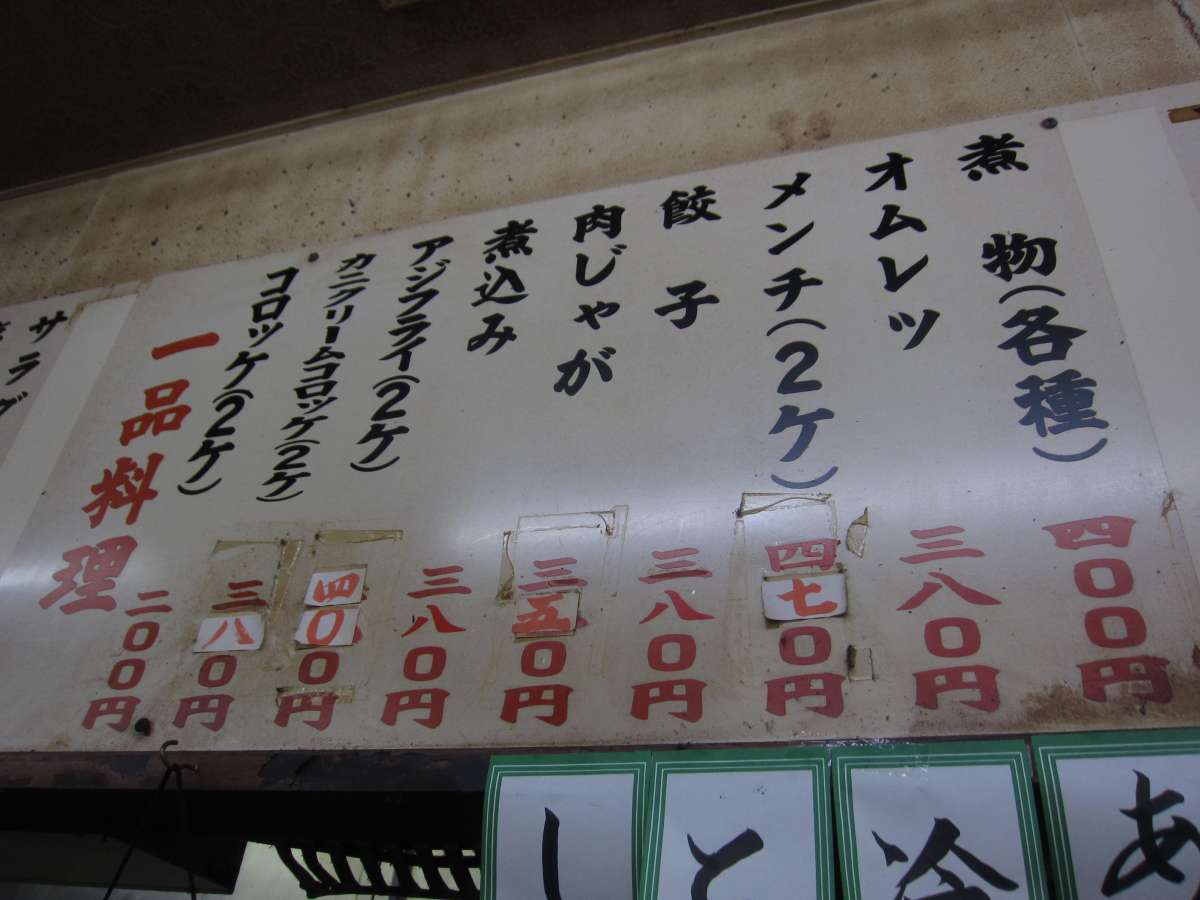 煮物(各種) 四〇〇円
オムレツ 三八〇円
メンチ(2ケ) 四七〇円
餃子 三八〇円
肉じゃが 三五〇円
煮込み 三八〇円
アジフライ(2ケ) 四〇〇円
カニクリームコロッケ(2ケ) 三八〇円
コロッケ(2ケ) 二〇〇円
一品料理
サラダ
あ
冷
と
し